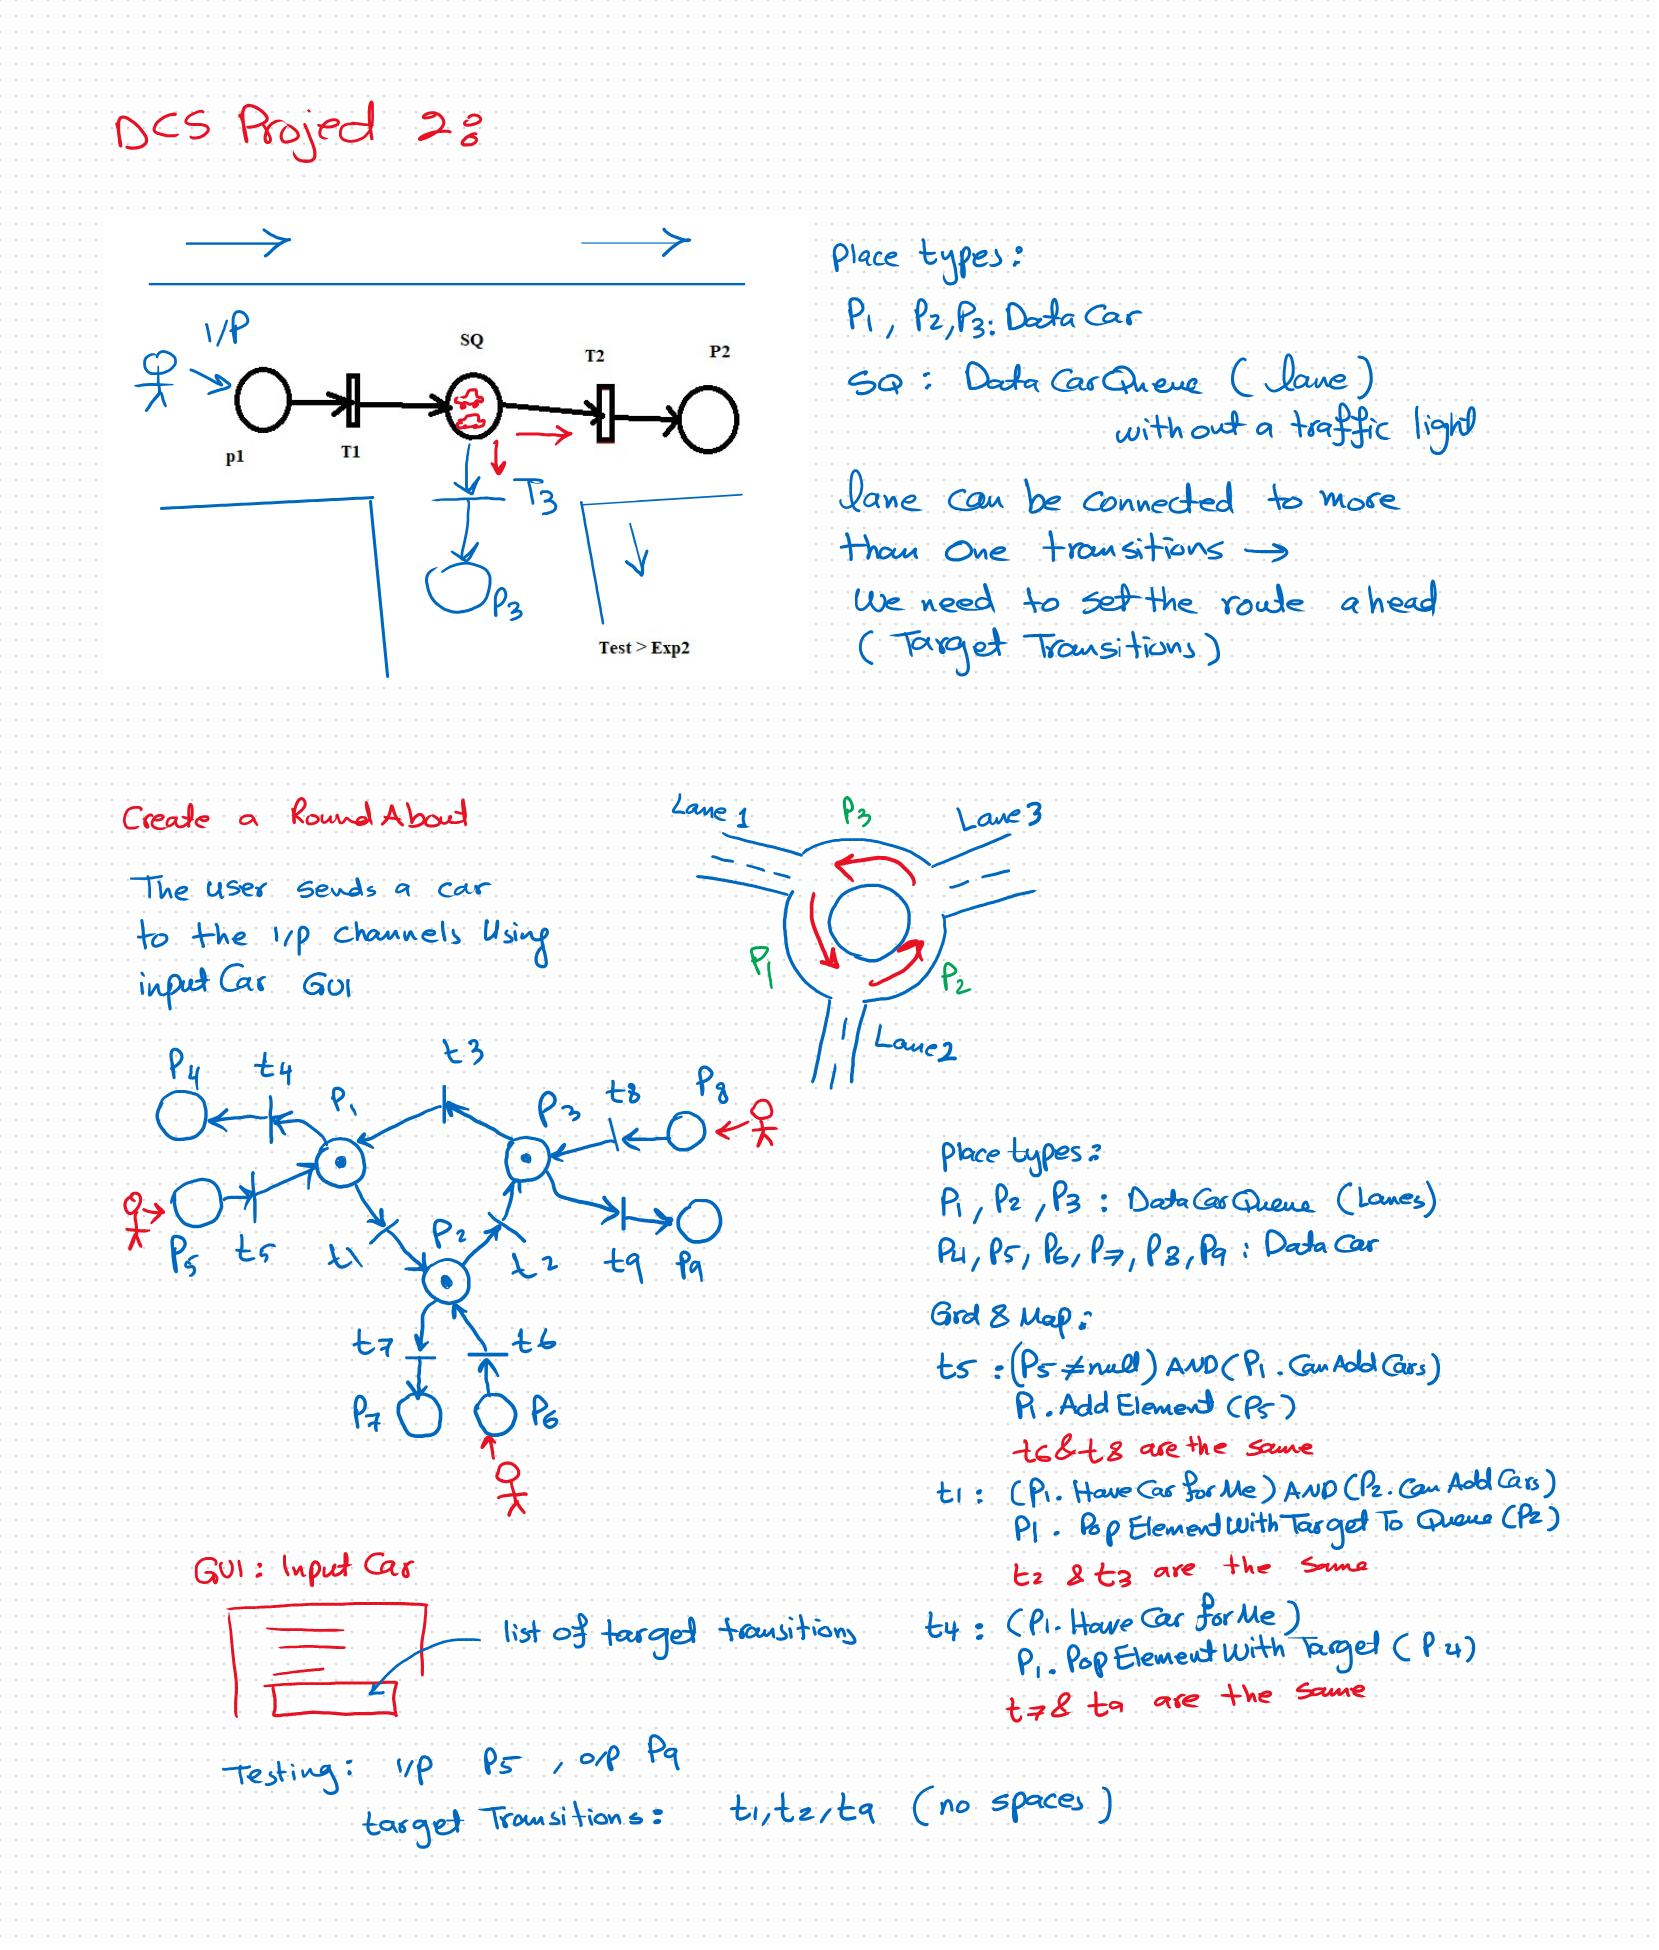 DCS Projed 2:
I/P
SQ
T2
P2
p1
T1
T3
P3
Test > Exp2
Place types:
P1, P2, P3: DataCar
SQ: DataCarQueue (lane)
without a traffic light
lane can be connected to more
than one transitions →
We need to set the route ahead
(Target Transitions)
Create a RoundAbout
The user sends a car
to the I/P channels Using
input Car GUI
Lane 1
P3
Lane 3
P1
P2
Lane 2
P4
t4
P1
t3
P3
t8
P8
P5
t5
t1
P2
t2
t9
P9
t7
t6
P7
P6
Place types:
P1, P2, P3: DataCarQueue (Lanes)
P4, P5, P6, P7, P8, P9: DataCar
Grd & Map:
t5: (P5 ≠ null) AND (P1.CanAddCars)
P1.AddElement(P5)
t6 & t8 are the same
t1: (P1.HaveCarforMe) AND (P2.CanAddCars)
P1.PopElementWithTargetToQueue(P2)
t2 & t3 are the same
t4: (P1.HaveCarforMe)
P1.PopElementWithTarget(P4)
t7 & t9 are the same
GUI: Input Car
list of target transitions
Testing: I/P P5, O/P P9
target Transitions: t1,t2,t9 (no spaces)